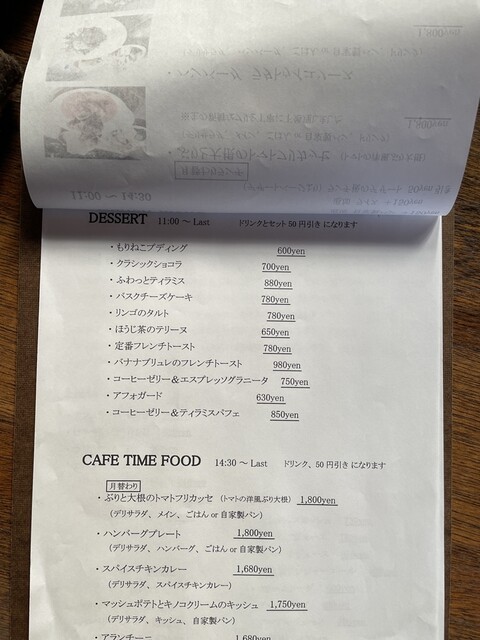 11:00 ～ 14:30
DESSERT 11:00 ～ Last ドリンクとセット 50 円引き になります
・もりねこプディング 600yen
・クラシックショコラ 700yen
・ふわっとティラミス 880yen
・バスクチーズケーキ 780yen
・リンゴのタルト 780yen
・ほうじ茶のテリーヌ 650yen
・定番フレンチトースト 780yen
・バナナブリュレのフレンチトースト 980yen
・コーヒーゼリー＆エスプレッソグラニータ 750yen
・アフォガード 630yen
・コーヒーゼリー＆ティラミスパフェ 850yen
CAFE TIME FOOD 14:30 ～ Last ドリンク、50 円引き になります
月替わり
・ぶりと大根のトマトフリカッセ （トマトの洋風ぶり大根） 1,800yen
（デリサラダ、メイン、ごはん or 自家製パン）
・ハンバーグプレート 1,800yen
（デリサラダ、 ハンバーグ、 ごはん or 自家製パン）
・スパイスチキンカレー 1,680yen
（デリサラダ、スパイスチキンカレー）
・マッシュポテトとキノコクリームのキッシュ 1,750yen
（デリサラダ、キッシュ、自家製パン）
・アランチーニ 1,680yen